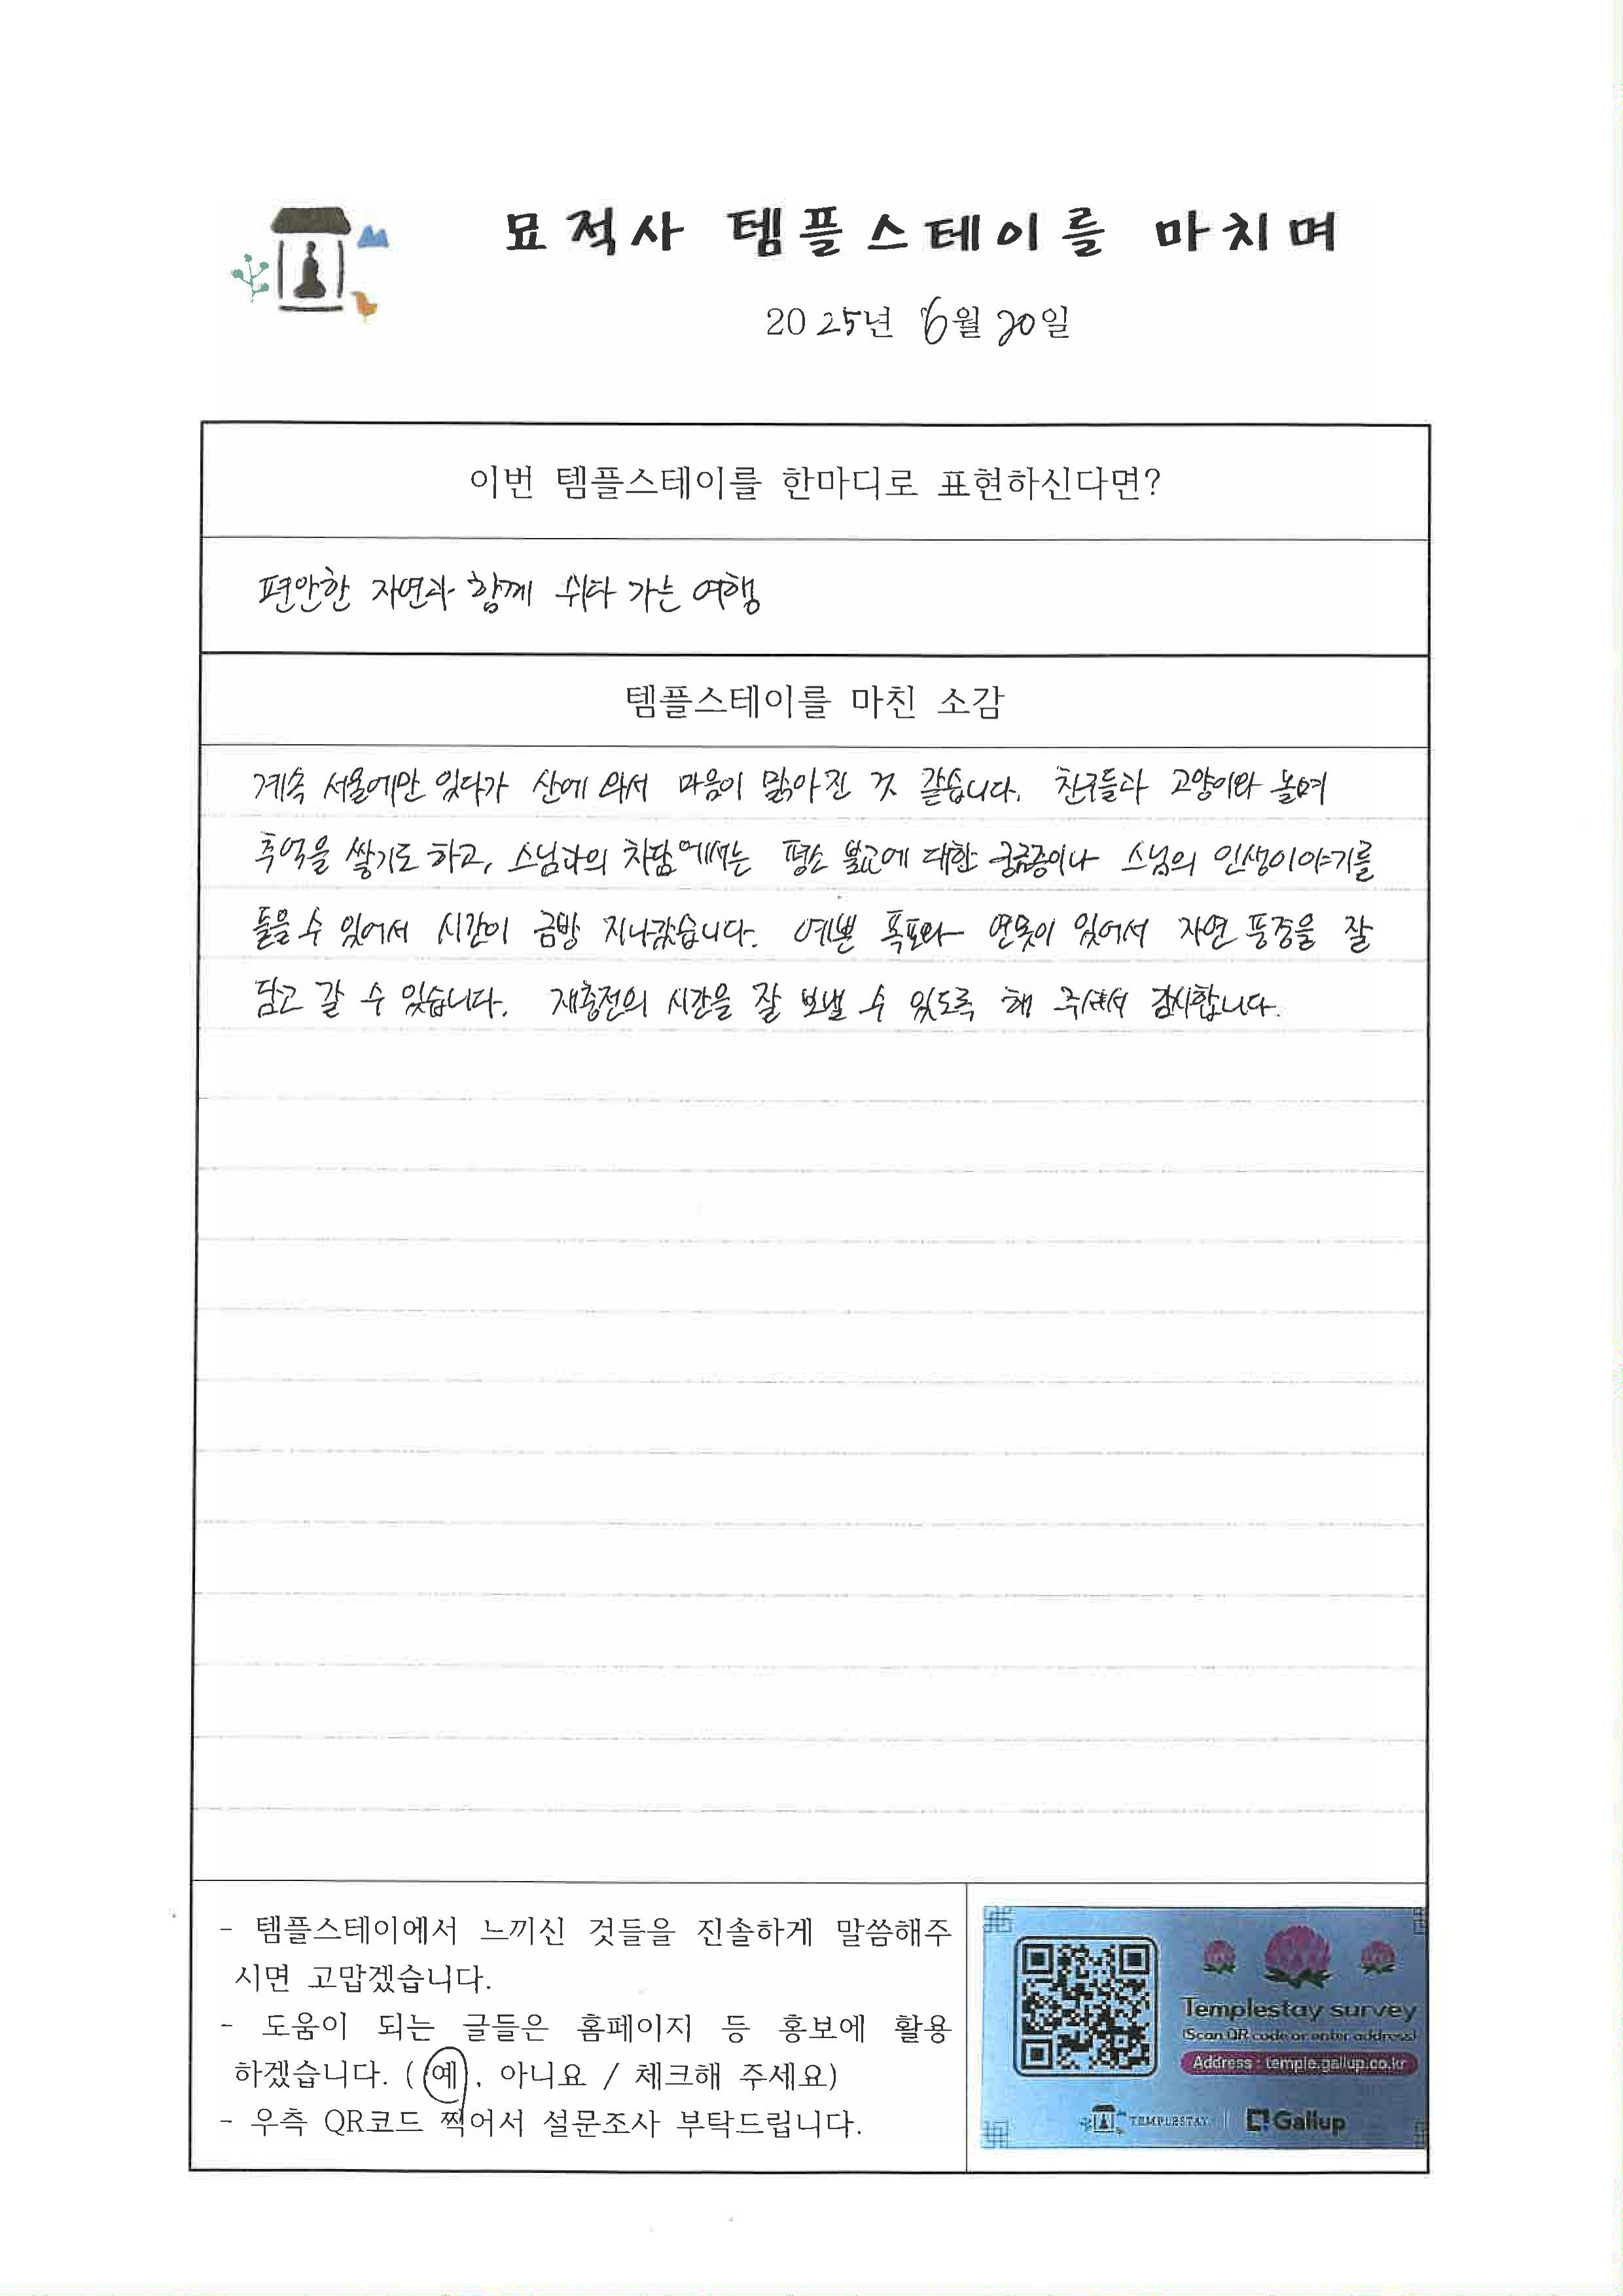 묘적사 템플스테이를 마치며
2025년 6월 20일
이번 템플스테이를 한마디로 표현하신다면?
편안한 자연과 함께 쉬다 가는 여행
템플스테이를 마친 소감
계속 서울에만 있다가 산에 와서 마음이 맑아진 것 같습니다. 친구들과 고양이와 놀며
추억을 쌓기도 하고, 스님과의 차담에서는 평소 불교에 대한 궁금증이나 스님의 인생이야기를
들을 수 있어서 시간이 금방 지나갔습니다. 예쁜 폭포와 연못이 있어서 자연 풍경을 잘
담고 갈 수 있습니다. 재충전의 시간을 잘 보낼 수 있도록 해 주셔서 감사합니다.
- 템플스테이에서 느끼신 것들을 진솔하게 말씀해주
시면 고맙겠습니다.
- 도움이 되는 글들은 홈페이지 등 홍보에 활용
하겠습니다. ( 예, 아니요 / 체크해 주세요)
- 우측 QR코드 찍어서 설문조사 부탁드립니다.
Templestay survey
(Scan QR code or enter address)
Address : temple.gallup.co.kr
TEMPLESTAY Gallup